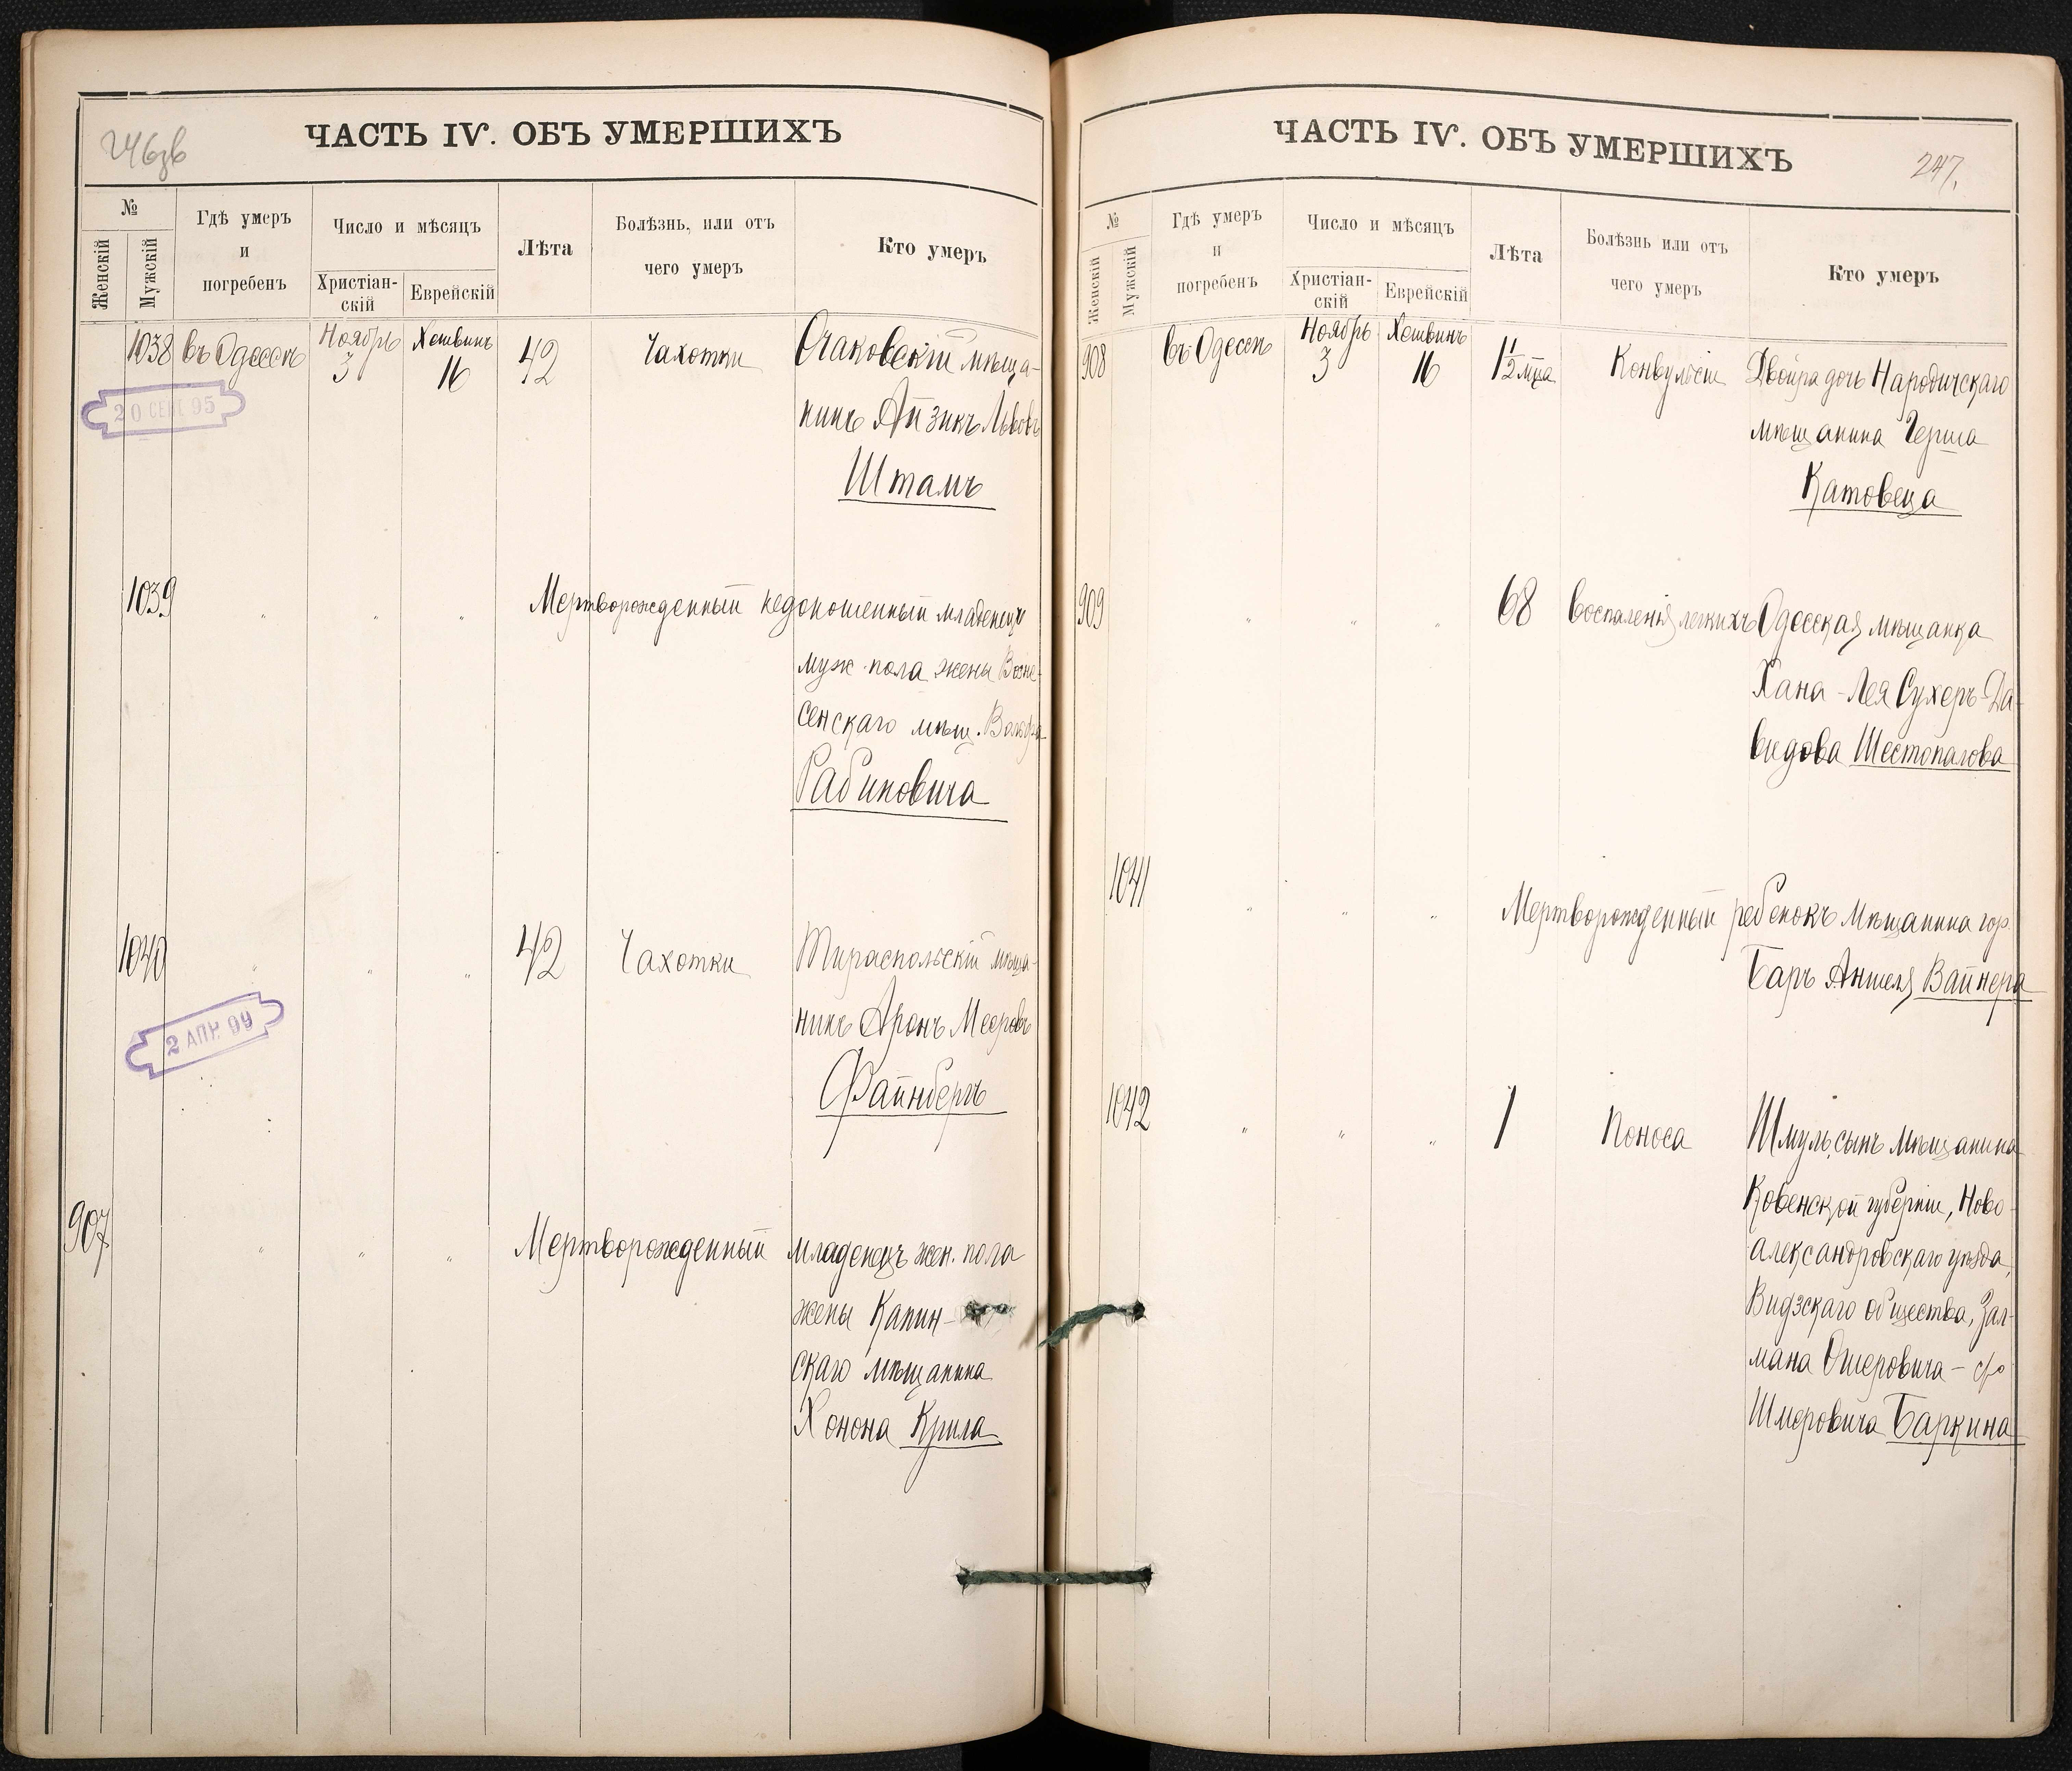 246зв
ЧАСТЬ IV. ОБЪ УМЕРШИХЪ
№
Женскій
Мужскій
Гдѣ умеръ
и
погребенъ
Число и мѣсяцъ
Христіан-
скій
Еврейскій
Лѣта
Болѣзнь, или отъ
чего умеръ
Кто умеръ
1038 въ Одессѣ Ноябрь 3 Хешвинъ 16 42 Чахотки Очаковскій мѣща-
нинъ Айзикъ Львовъ
Штамъ
20 СЕН 95
1039 " " " Мертворожденный недоношенный младенецъ
муж пола жены Возне-
сенскаго мѣщ. Вольфа
Рабиновича
1040 " " " 42 Чахотки Тираспольскій мѣща-
нинъ Аронъ Мееровъ
Файнбергъ
2 АПР. 99
907 " " " Мертворожденный младенецъ жен. пола
жены
скаго мѣщанина
Хонона
ЧАСТЬ IV. ОБЪ УМЕРШИХЪ
247.
№
Женскій
Мужскій
Гдѣ умеръ
и
погребенъ
Число и мѣсяцъ
Христіан-
скій
Еврейскій
Лѣта
Болѣзнь или отъ
чего умеръ
Кто умеръ
908 въ Одессѣ Ноябрь 3 Хешвинъ 16 1½ мца Конвульсіи Двойра дочь Народичскаго
мѣщанина Герша
Катовеца
909 " " " 68 Воспаленія легкихъ Одесская мѣщанка
Хана-Лея Сухеръ-Да-
видова Шестопалова
1041 " " " Мертворожденный ребенокъ мѣщанина гор.
Баръ Аншеля Вайнера
1042 " " " 1 Поноса Шмуль, сынъ мѣщанина
Ковенской губерніи, Ново-
александровскаго уѣзда,
Видзскаго общества, Зал-
мана Ошеровича-
Шмеровича Баркина